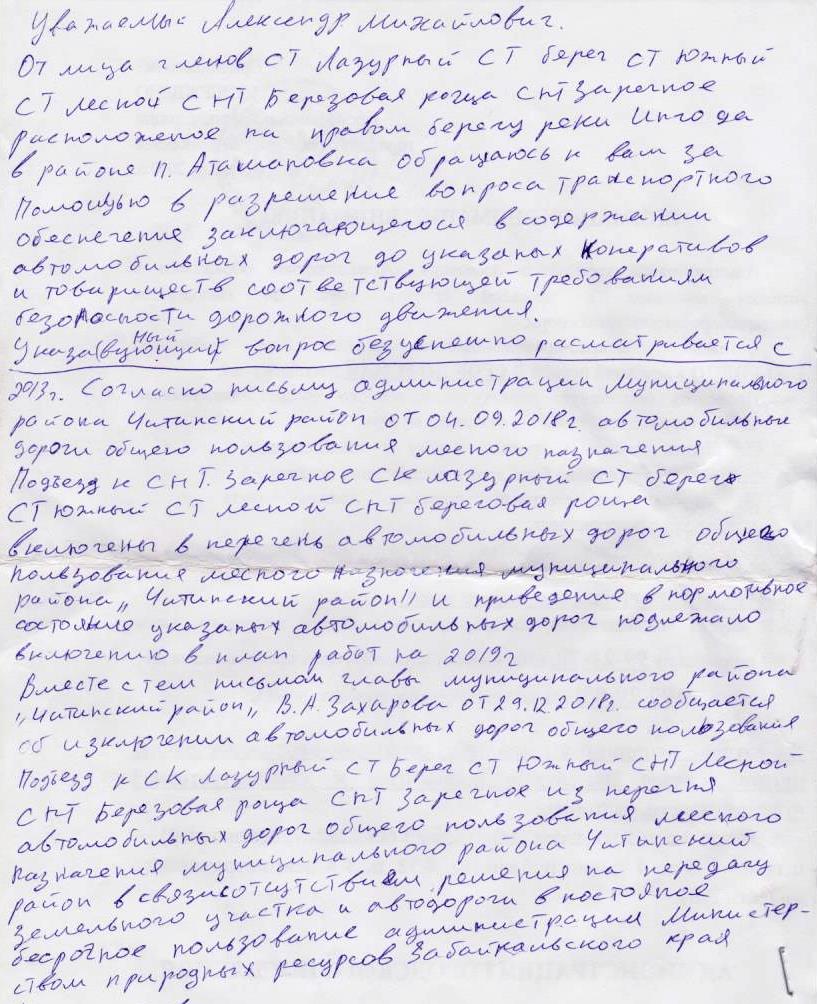 Уважаемый Александр Михайлович.
От лица членов СТ Лазурный СТ берег СТ Южный
СТ лесной СНТ Березовая роща СНТ Заречное
расположеное на правом берегу реки Ингода
в районе п. Атамановка обращаюсь к вам за
помощью в разрешение вопроса транспортного
обеспечение заключающегося в содержании
автомобильных дорог до указаных кооперативов
и товариществ соответствующей требованиям
безопасности дорожного движения.
Указанный вопрос безуспешно расматривается с
2013г. Согласно письму администрации Муниципального
района Читинский район от 04.09.2018г. автомобильные
дороги общего пользования месного назначения
Подъезд к СНТ. Заречное СК лазурный СТ берег
СТ южный СТ лесной СНТ береговая роща
включены в перечень автомобильных дорог общего
пользования месного назначения муниципального
района „Читинский район" и приведение в нормотивное
состояние указаных автомобильных дорог подлежало
включению в план работ на 2019г
Вместе с тем письмом главы муниципального района
„Читинский район„ В.А. Захарова от 29.12.2018г. сообщается
об изключении автомобильных дорог общего пользования
Подъезд к СК Лазурный СТ Берег СТ Южный СНТ Лесной
СНТ Березовая роща СНТ Заречное из перечня
автомобильных дорог общего пользования месного
назначения муниципального района Читинский
район в связи с отсутствием решения на передачу
земельного участка и автодороги в постояное
бесрочное пользование администрации Министер-
ством природных ресурсов Забайкальского края